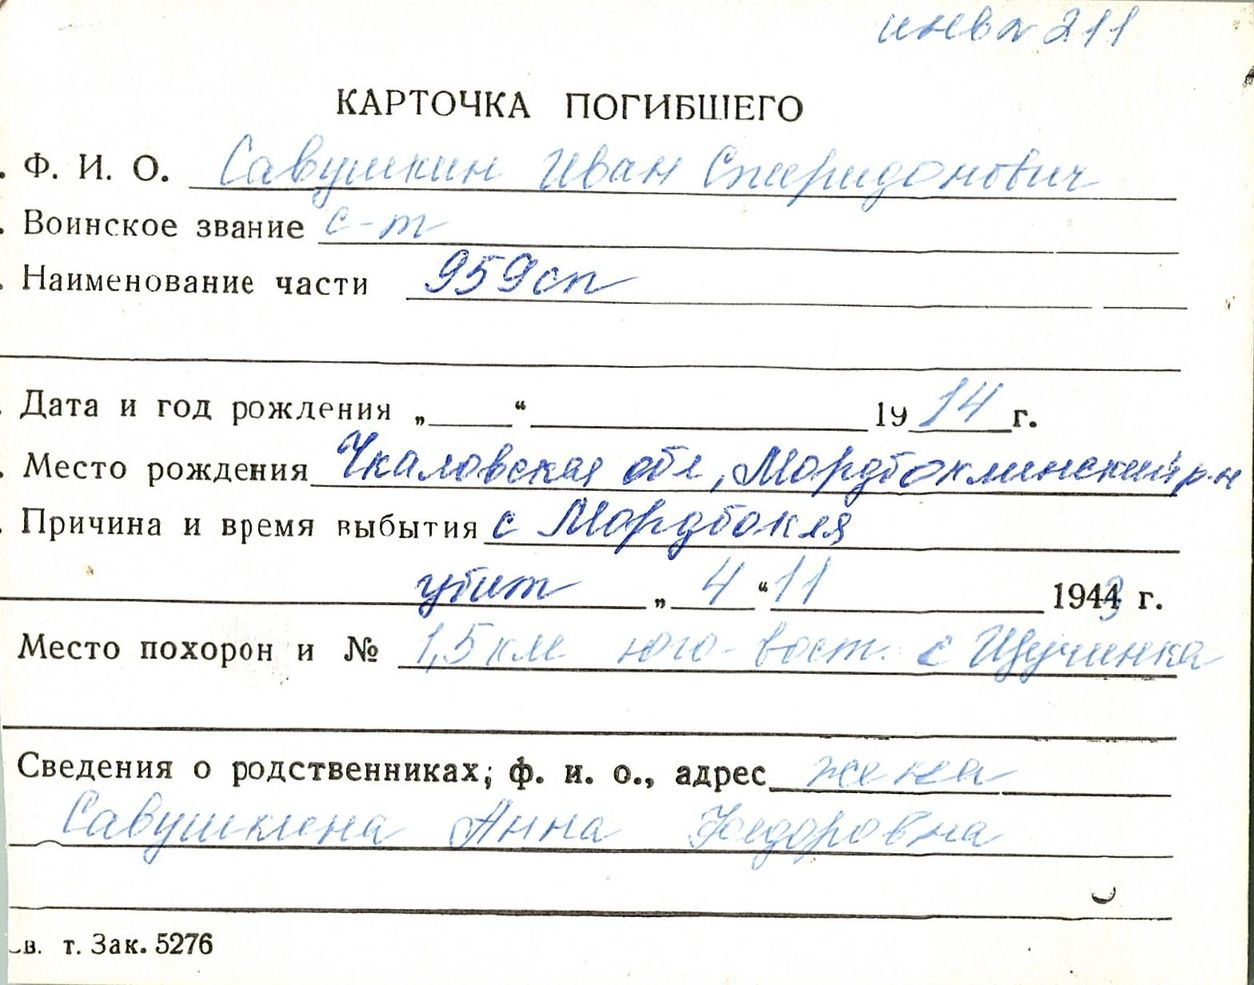 инв № 211
КАРТОЧКА ПОГИБШЕГО
. Ф. И. О. Савушкин Иван Спиридонович
. Воинское звание с-т
. Наименование части 959сп
. Дата и год рождения „ “ 1914 г.
. Место рождения Чкаловская обл, Мордбоклинский р-н
. Причина и время выбытия с Мордбокля
убит „ 4 “ 11 1943 г.
Место похорон и № 1,5 км юго-вост. с Щучинка
Сведения о родственниках; ф. и. о., адрес жена
Савушкина Анна Федоровна
в. т. Зак. 5276